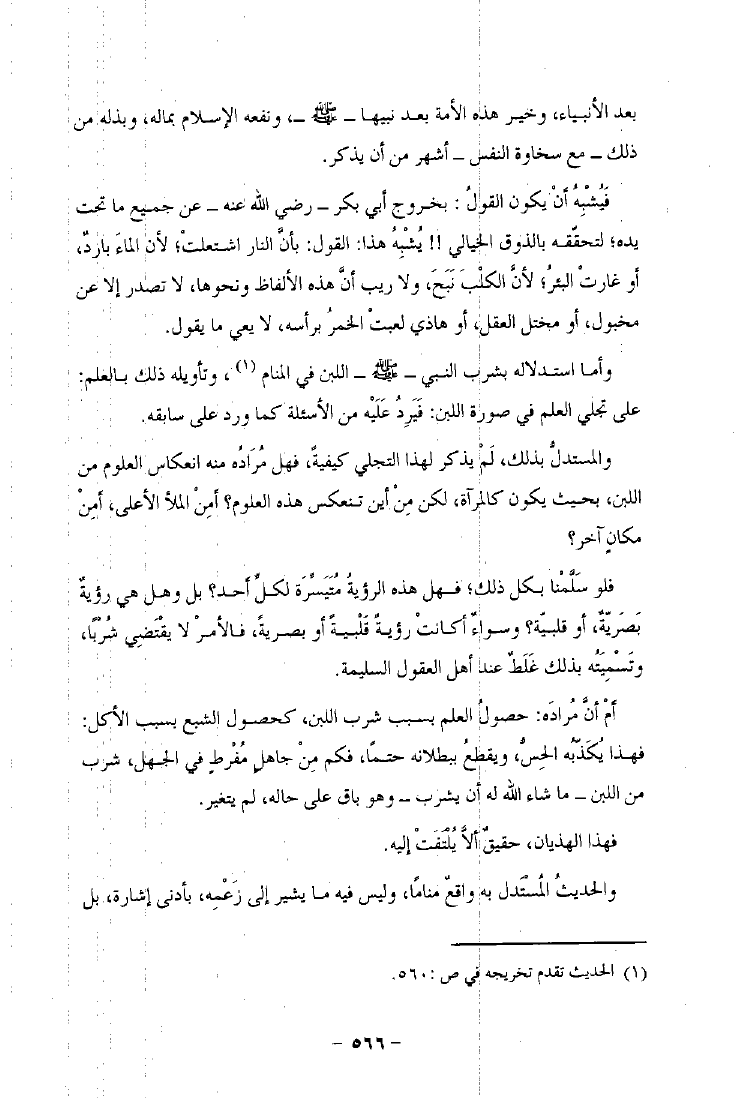 بعد الأنبياء، وخير هذه الأمة بعد نبيها ــ ﷺ ــ، ونفعه الإسلام بماله، وبذله من
ذلك ــ مع سخاوة النفس ــ أشهر من أن يذكر.
فَيُشْبِهُ أنْ يكون القولُ : بخروج أبي بكر ــ رضي الله عنه ــ عن جميع ما تحت
يده؛ لتحققه بالذوق الخيالي !! يُشْبِهُ هذا: القول: بأنَّ النار اشتعلتْ؛ لأن الماءَ باردٌ،
أو غارتْ البئرُ؛ لأنَّ الكلْبَ نَبَحَ، ولا ريب أنَّ هذه الألفاظ ونحوها، لا تصدر إلا عن
مخبول، أو مختل العقل، أو هاذي لعبتْ الخمرُ برأسه، لا يعي ما يقول.
وأما استدلاله بشرب النبي ــ ﷺ ــ اللبن في المنام (١)، وتأويله ذلك بالعلم:
على تجلي العلم في صورة اللبن: فَيَرِدُ عَلَيْه من الأسئلة كما ورد على سابقه.
والمستدلُّ بذلك، لَمْ يذكر لهذا التجلي كيفيةً، فهل مُرَادُه منه انعكاس العلوم من
اللبن، بحيث يكون كالمرآة، لكن مِنْ أين تنعكس هذه العلوم؟ أمِنْ الملأ الأعلى، أمِنْ
مكانٍ آخر؟
فلو سَلَّمْنا بكل ذلك؛ فهل هذه الرؤيةُ مُتَيَسِّرَة لكلِّ أحد؟ بل وهل هي رؤيةٌ
بَصَرِيّةٌ، أو قلبيّة؟ وسواءٌ أكانتْ رؤيةً قَلْبيةً أو بصريةً، فالأمرْ لا يقْتَضِي شُرْبًا،
وتَسْمِيَتُه بذلك غَلَطٌ عند أهل العقول السليمة.
أمْ أنَّ مُرادَه: حصولُ العلم بسبب شرب اللبن، كحصول الشبع بسبب الأكل:
فهذا يُكَذّبُه الحِسُّ، ويقطعُ ببطلانه حتمًا، فكم مِنْ جاهلٍ مُفْرطٍ في الجهل، شرب
من اللبن ــ ما شاء الله له أن يشرب ــ وهو باق على حاله، لم يتغير.
فهذا الهذيان، حقيقٌ ألاَّ يُلْتَفَتْ إليه.
والحديثُ المُسْتَدل به واقعٌ منامًا، وليس فيه ما يشير إلى زَعْمِه، بأدنى إشارة، بل
(١) الحديث تقدم تخريجه في ص :٥٦٠.
- ٥٦٦ -